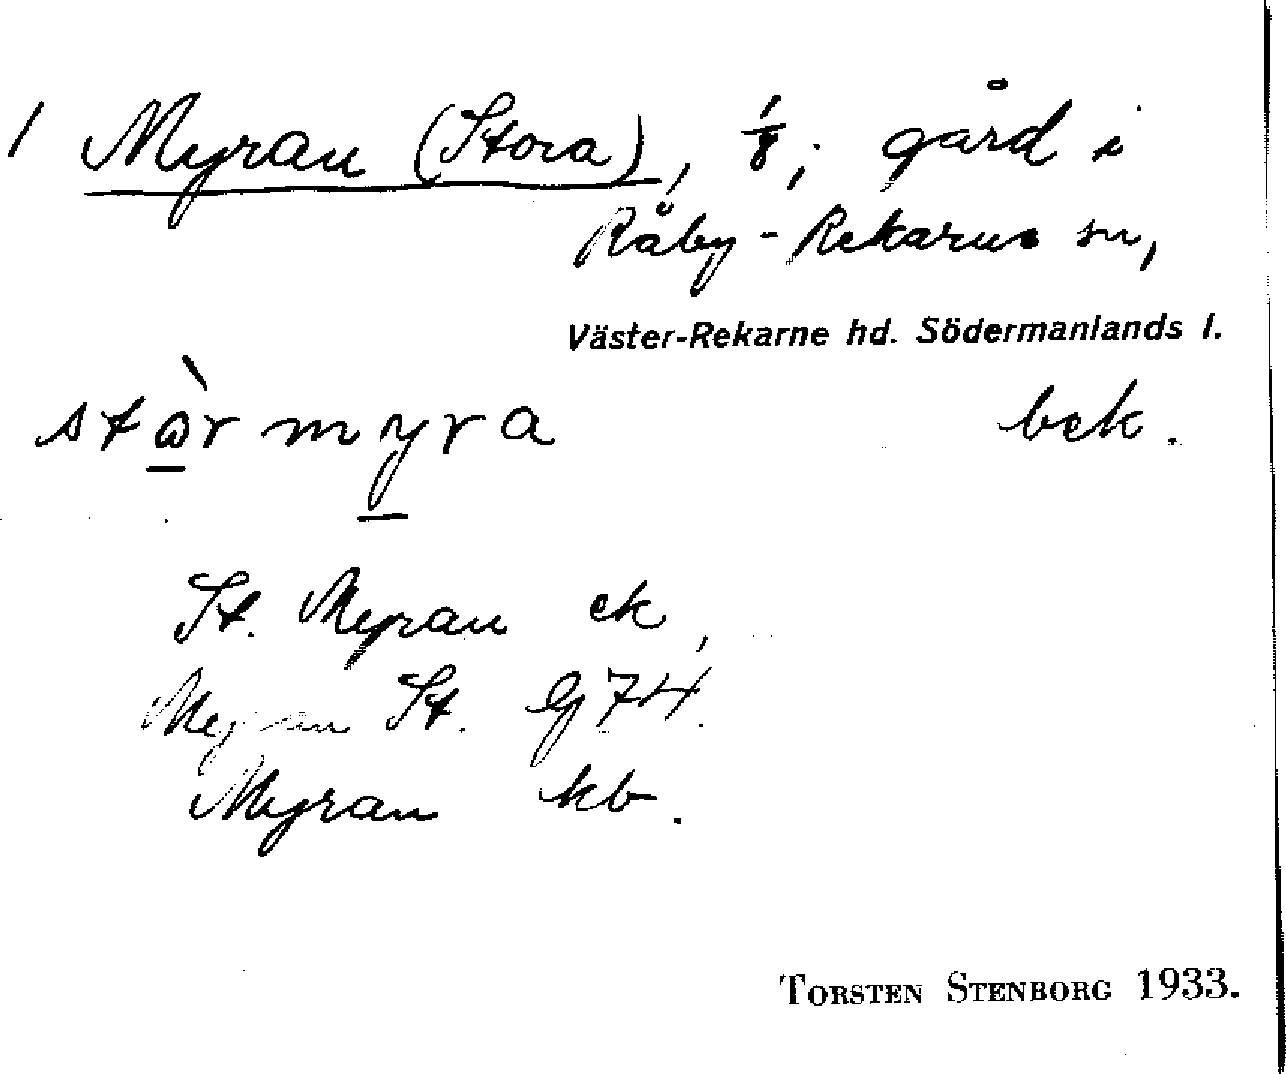 1 Myran (Stora), 1/8; gård i
Råby-Rekarne sn,
Väster-Rekarne hd. Södermanlands l.
stὼr myra bek.
St. Myran ek,
Myran St. Gj 74.
Myran kb.
TORSTEN STENBORG 1933.